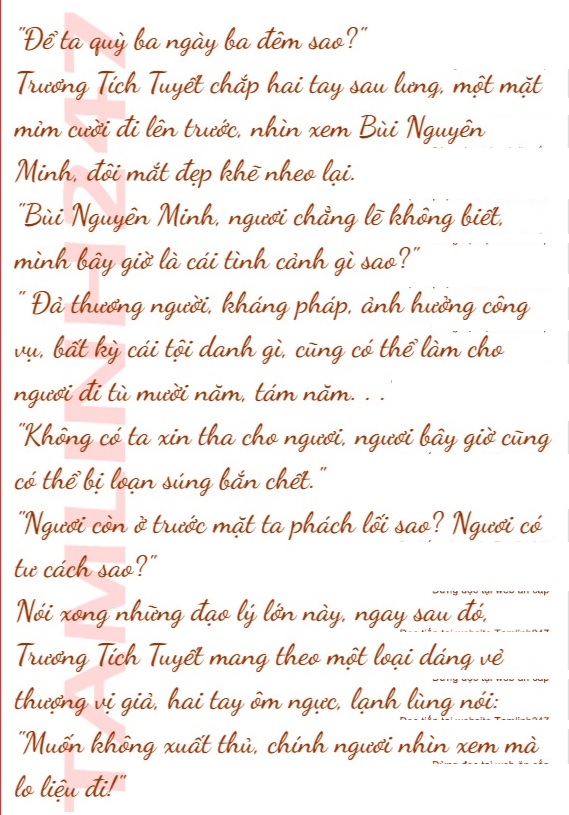 "Để ta quỳ ba ngày ba đêm sao?"
Trương Tích Tuyết chắp hai tay sau lưng, một mặt
mỉm cười đi lên trước, nhìn xem Bùi Nguyên
Minh, đôi mắt đẹp khẽ nheo lại.
"Bùi Nguyên Minh, ngươi chẳng lẽ không biết,
mình bây giờ là cái tình cảnh gì sao?"
" Đả thương người, kháng pháp, ảnh hưởng công
vụ, bất kỳ cái tội danh gì, cũng có thể làm cho
ngươi đi tù mười năm, tám năm. . .
"Không có ta xin tha cho ngươi, ngươi bây giờ cũng
có thể bị loạn súng bắn chết."
"Ngươi còn ở trước mặt ta phách lối sao? Ngươi có
tư cách sao?"
Nói xong những đạo lý lớn này, ngay sau đó,
Trương Tích Tuyết mang theo một loại dáng vẻ
thượng vị giả, hai tay ôm ngực, lạnh lùng nói:
"Muốn không xuất thủ, chính ngươi nhìn xem mà
lo liệu đi!"
TAMLINH247